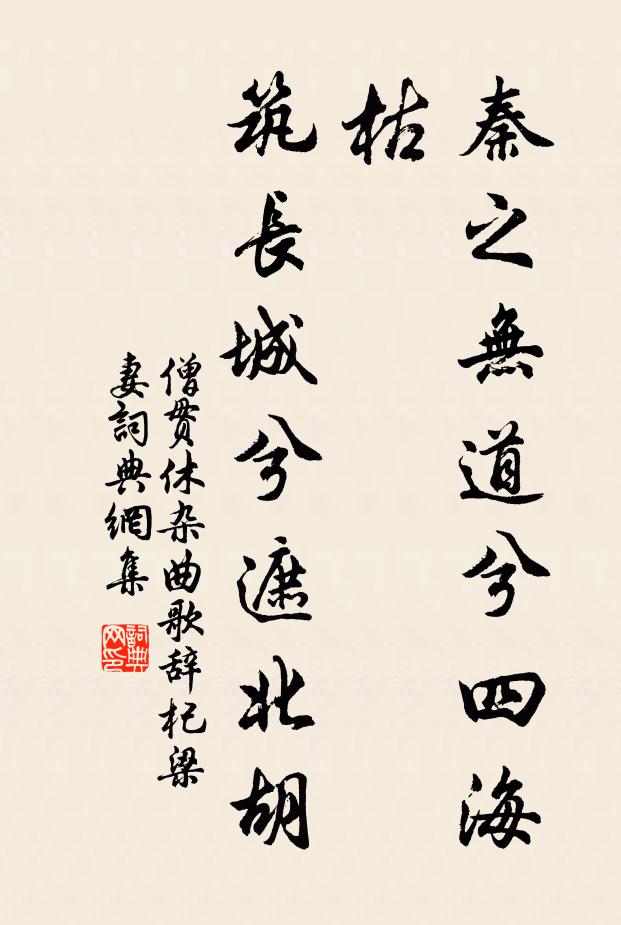 秦之無道兮四海
枯
筑長城兮遮北胡
僧贯休杂曲歌辞杞梁
妻詞典網集
詞典
网印